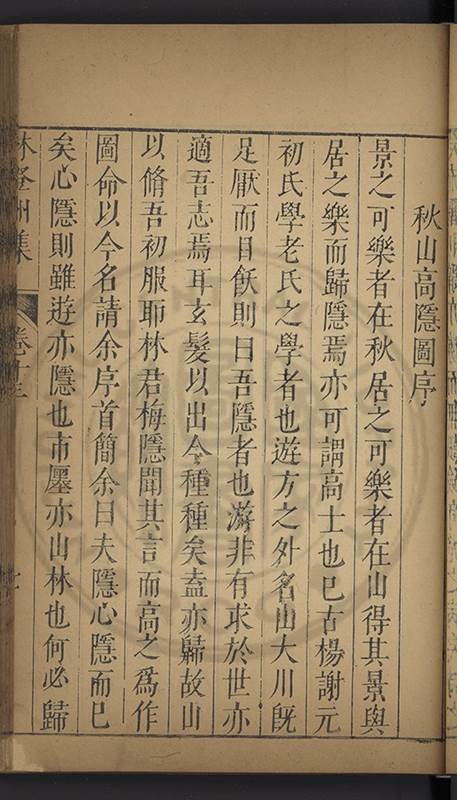 秋山高隱圖序
景之可樂者在秋居之可樂者在山得其景與
居之樂而歸隱焉亦可謂高士也已古楊謝元
初氏學老氏之學者也遊方之外名山大川既
足厭而目飫則曰吾隱者也游非有求於世亦
適吾志焉耳玄髮以出今種種矣盍亦歸故山
以脩吾初服耶林君梅隱聞其言而高之爲作
圖命以今名請余序首簡余曰夫隱心隱而已
矣心隱則雖遊亦隱也市廛亦山林也何必歸
林登州集
卷十三